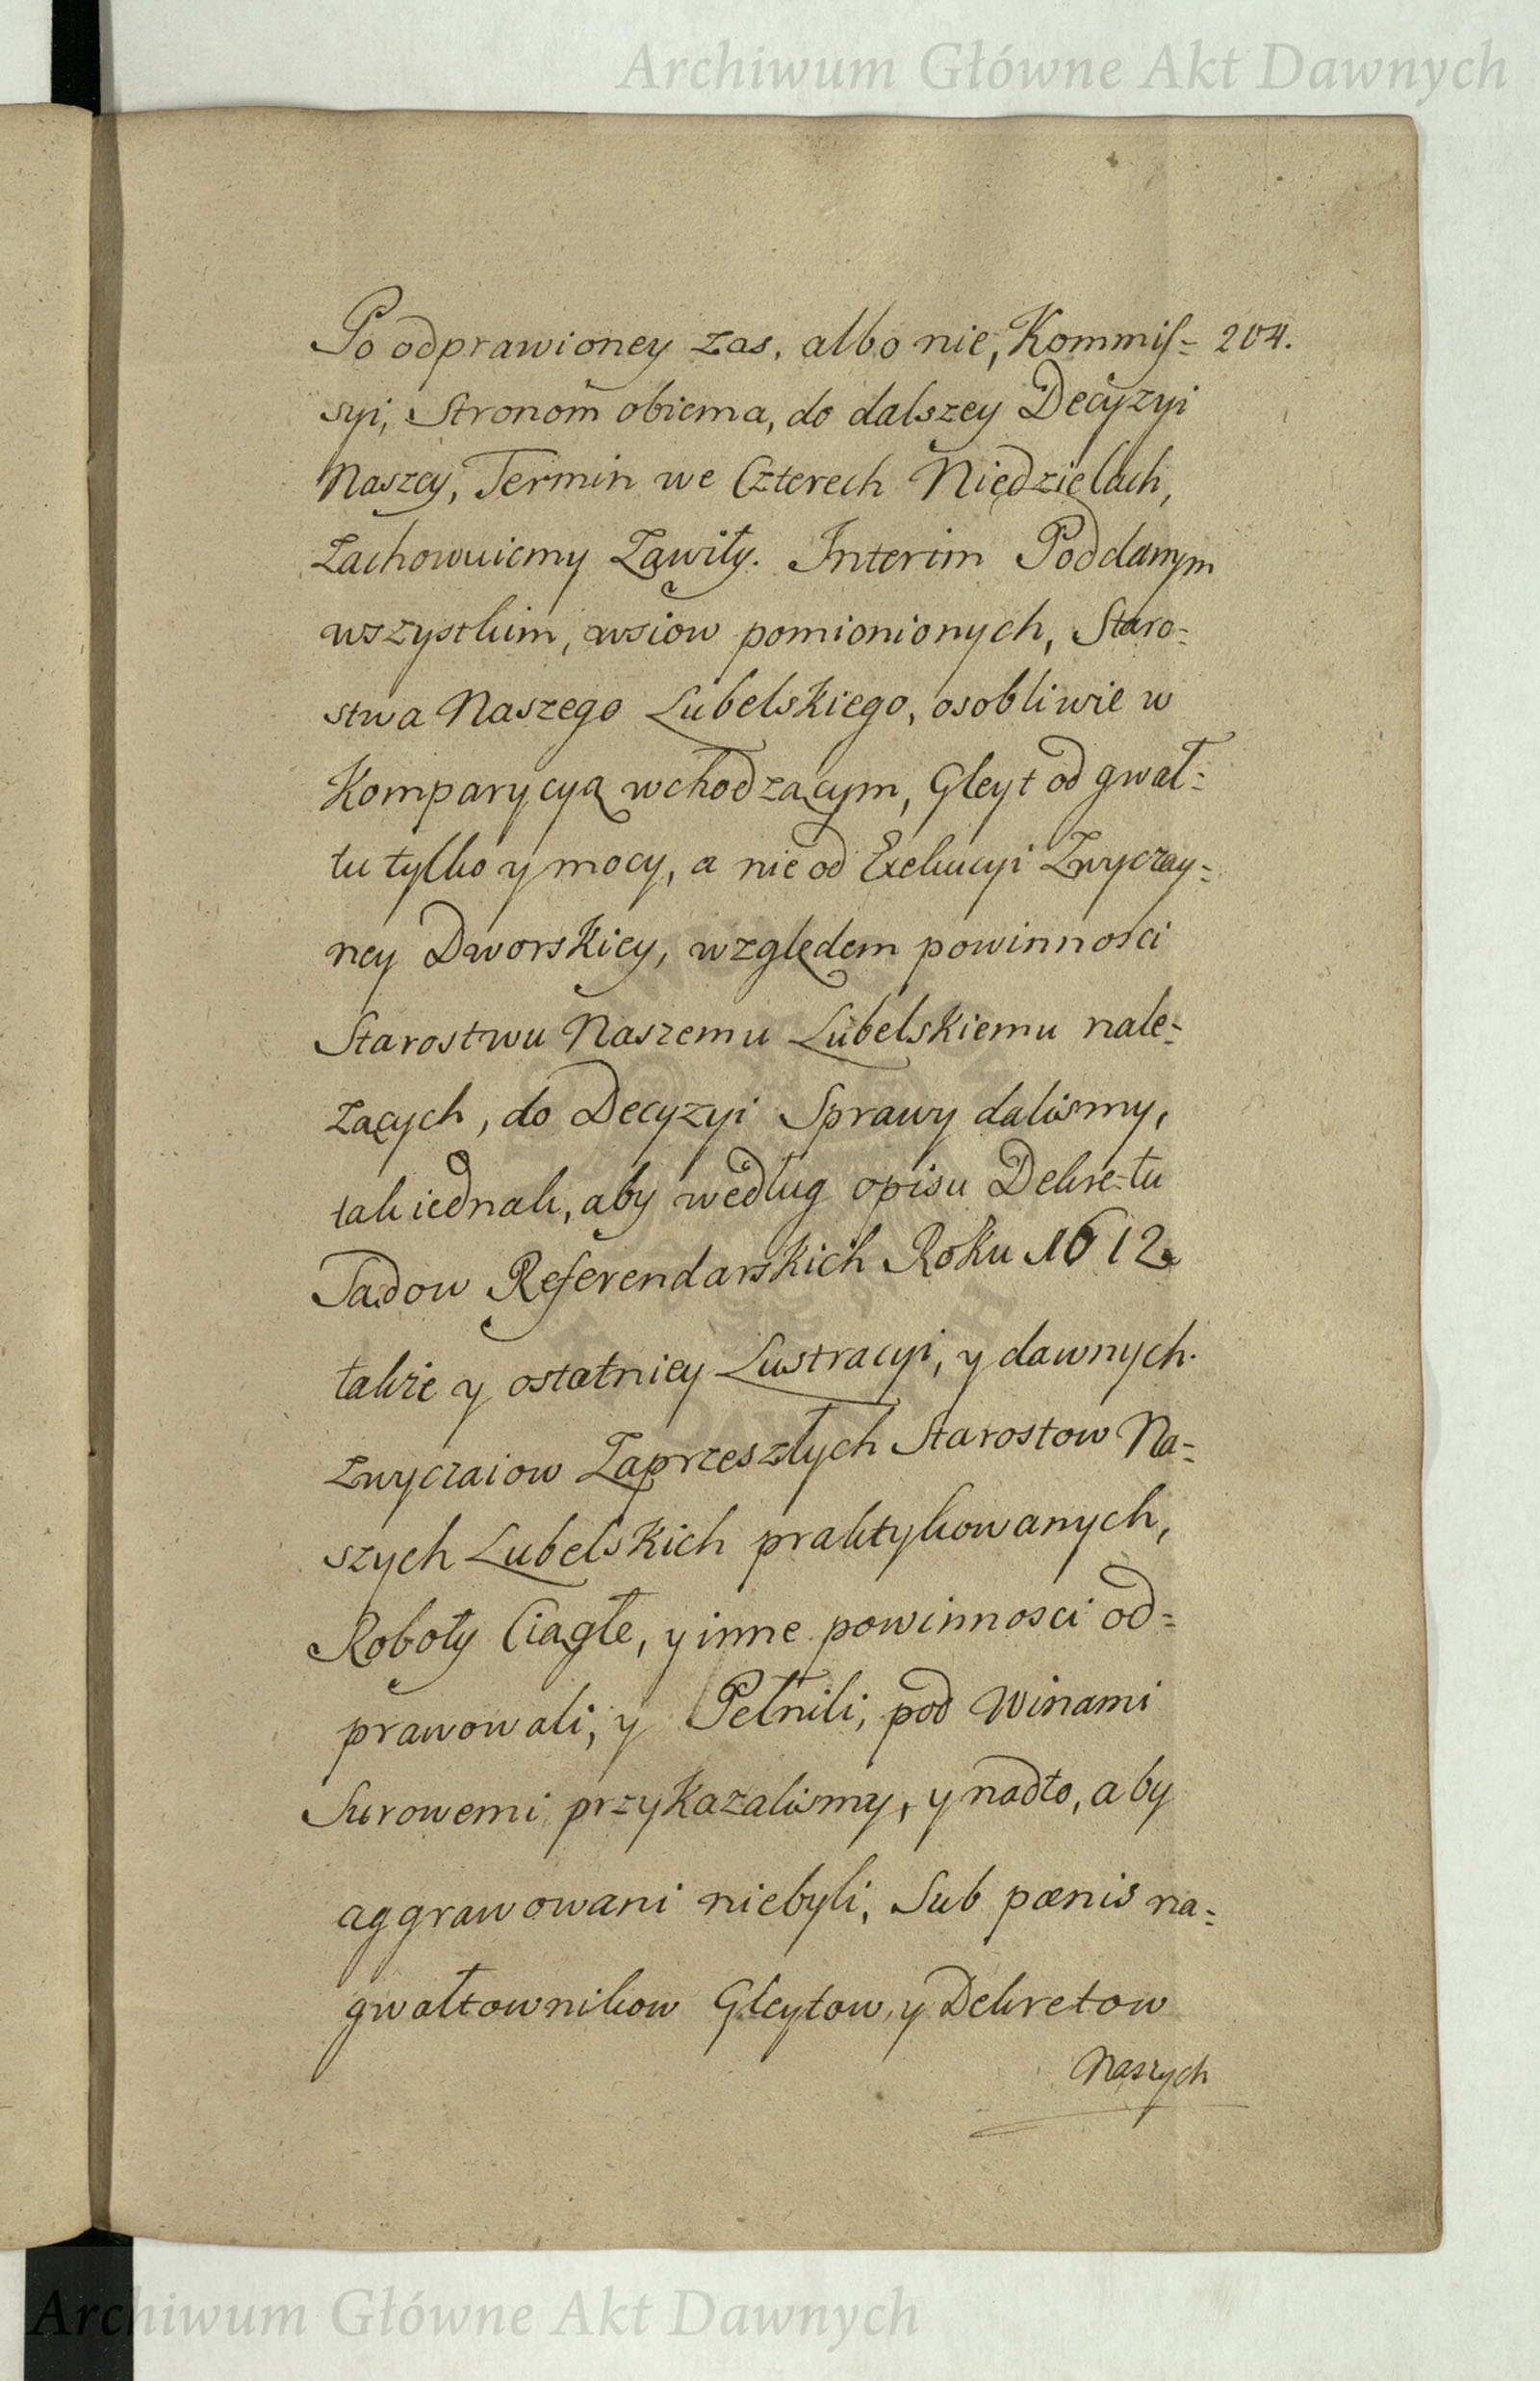 Archiwum Główne Akt Dawnych
Po odprawioney zas, albo nie, Kommis= 204.
syi, Stronom obiema, do dalszey Decyzyi
Naszey, Termin we Czterech Niedzielach,
zachowuiemy Zawity. Interim Poddanym
wszystkim, wsiow pomionionych, Staro=
stwa Naszego Lubelskiego, osobliwie w
Komparycyą wchodzącym, Gleyt od gwał=
tu tylko y mocy, a nie od Exekucyi Zwyczay=
ney Dworskiey, względem powinności
Starostwu Naszemu Lubelskiemu nale=
żących, do Decyzyi Sprawy dalismy,
tak iednak, aby według opisu Dekretu
Sądow Referendarskich Roku 1612.
także y ostatniey Lustracyi, y dawnych.
zwyczaiow Zaprzeszłych Starostow Na=
szych Lubelskich praktykowanych,
Roboty Ciągłe, y inne powinnosci od=
prawowali, y Pełnili, pod Winami
Surowemi przykazalismy, y nadto, aby
aggrawowani niebyli, Sub pœnis na=
gwałtownikow Gleytow, y Dekretow
Naszych
Archiwum Główne Akt Dawnych